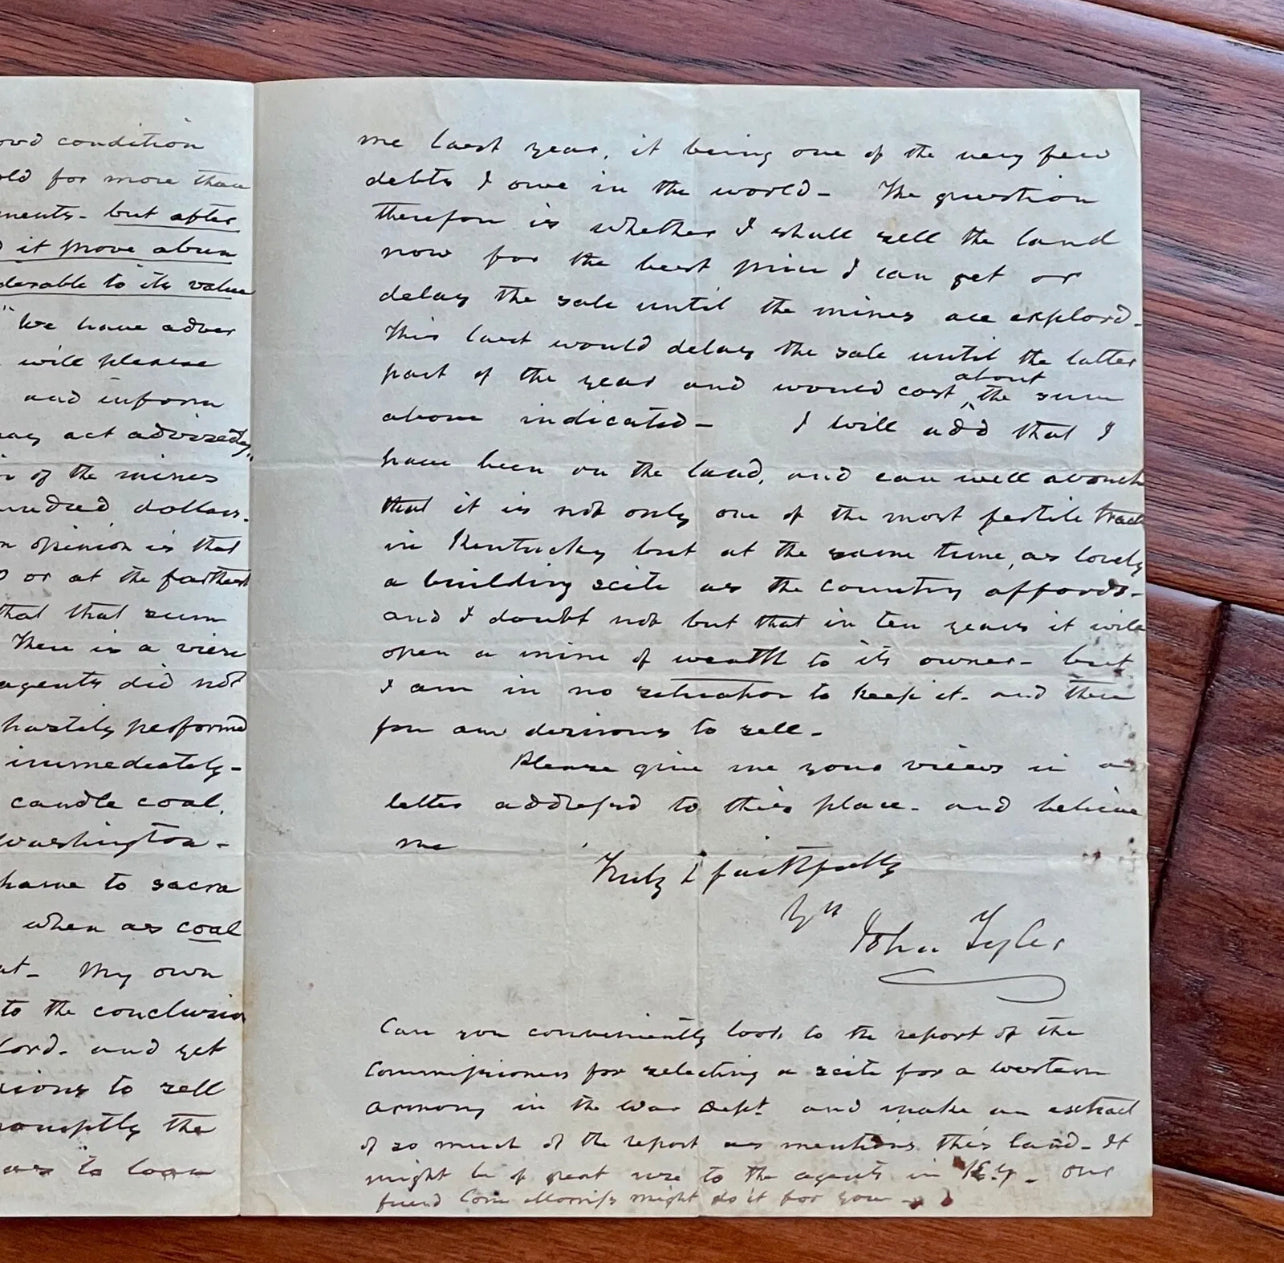 ood condition
old for more than
ments - but after
d it prove abun
derable to its value
" We have adver
will please
and inform
may act advisedly.
of the mines
hundred dollars.
n opinion is that
or at the farthest
that that sum
There is a view
agents did not
hastily performd
immediately -
candle coal,
Washington -
have to sacra
when as coal
at - My own
to the conclusion
ford - and yet
sions to sell
promptly the
as to loan
me last year, it being one of the very few
debts I owe in the world - The question
therefore is whether I shall sell the land
now for the best price I can get or
delay the sale until the mines are explord -
This last would delay the sale until the latter
part of the year and would cost about the sum
above indicated - I will add that I
have been on the land, and can well avouch
that it is not only one of the most fertile tracts
in Kentucky but at the same time, as lovely
a building scite as the country affords -
and I doubt not but that in ten years it will
open a mine of wealth to its owner - but
I am in no situation to keep it - and there
for am desirous to sell -
Please give me your views in a
letter addressd to this place - and believe
me
Truly & faithfully
Yrs John Tyler
Can you conveniently look to the report of the
Commissioners for selecting a scite for a western
armory in the War Dept and make an extract
of so much of the report as mentions this land - It
might be of great use to the agents in Ky - Our
friend Com Morris might do it for you -